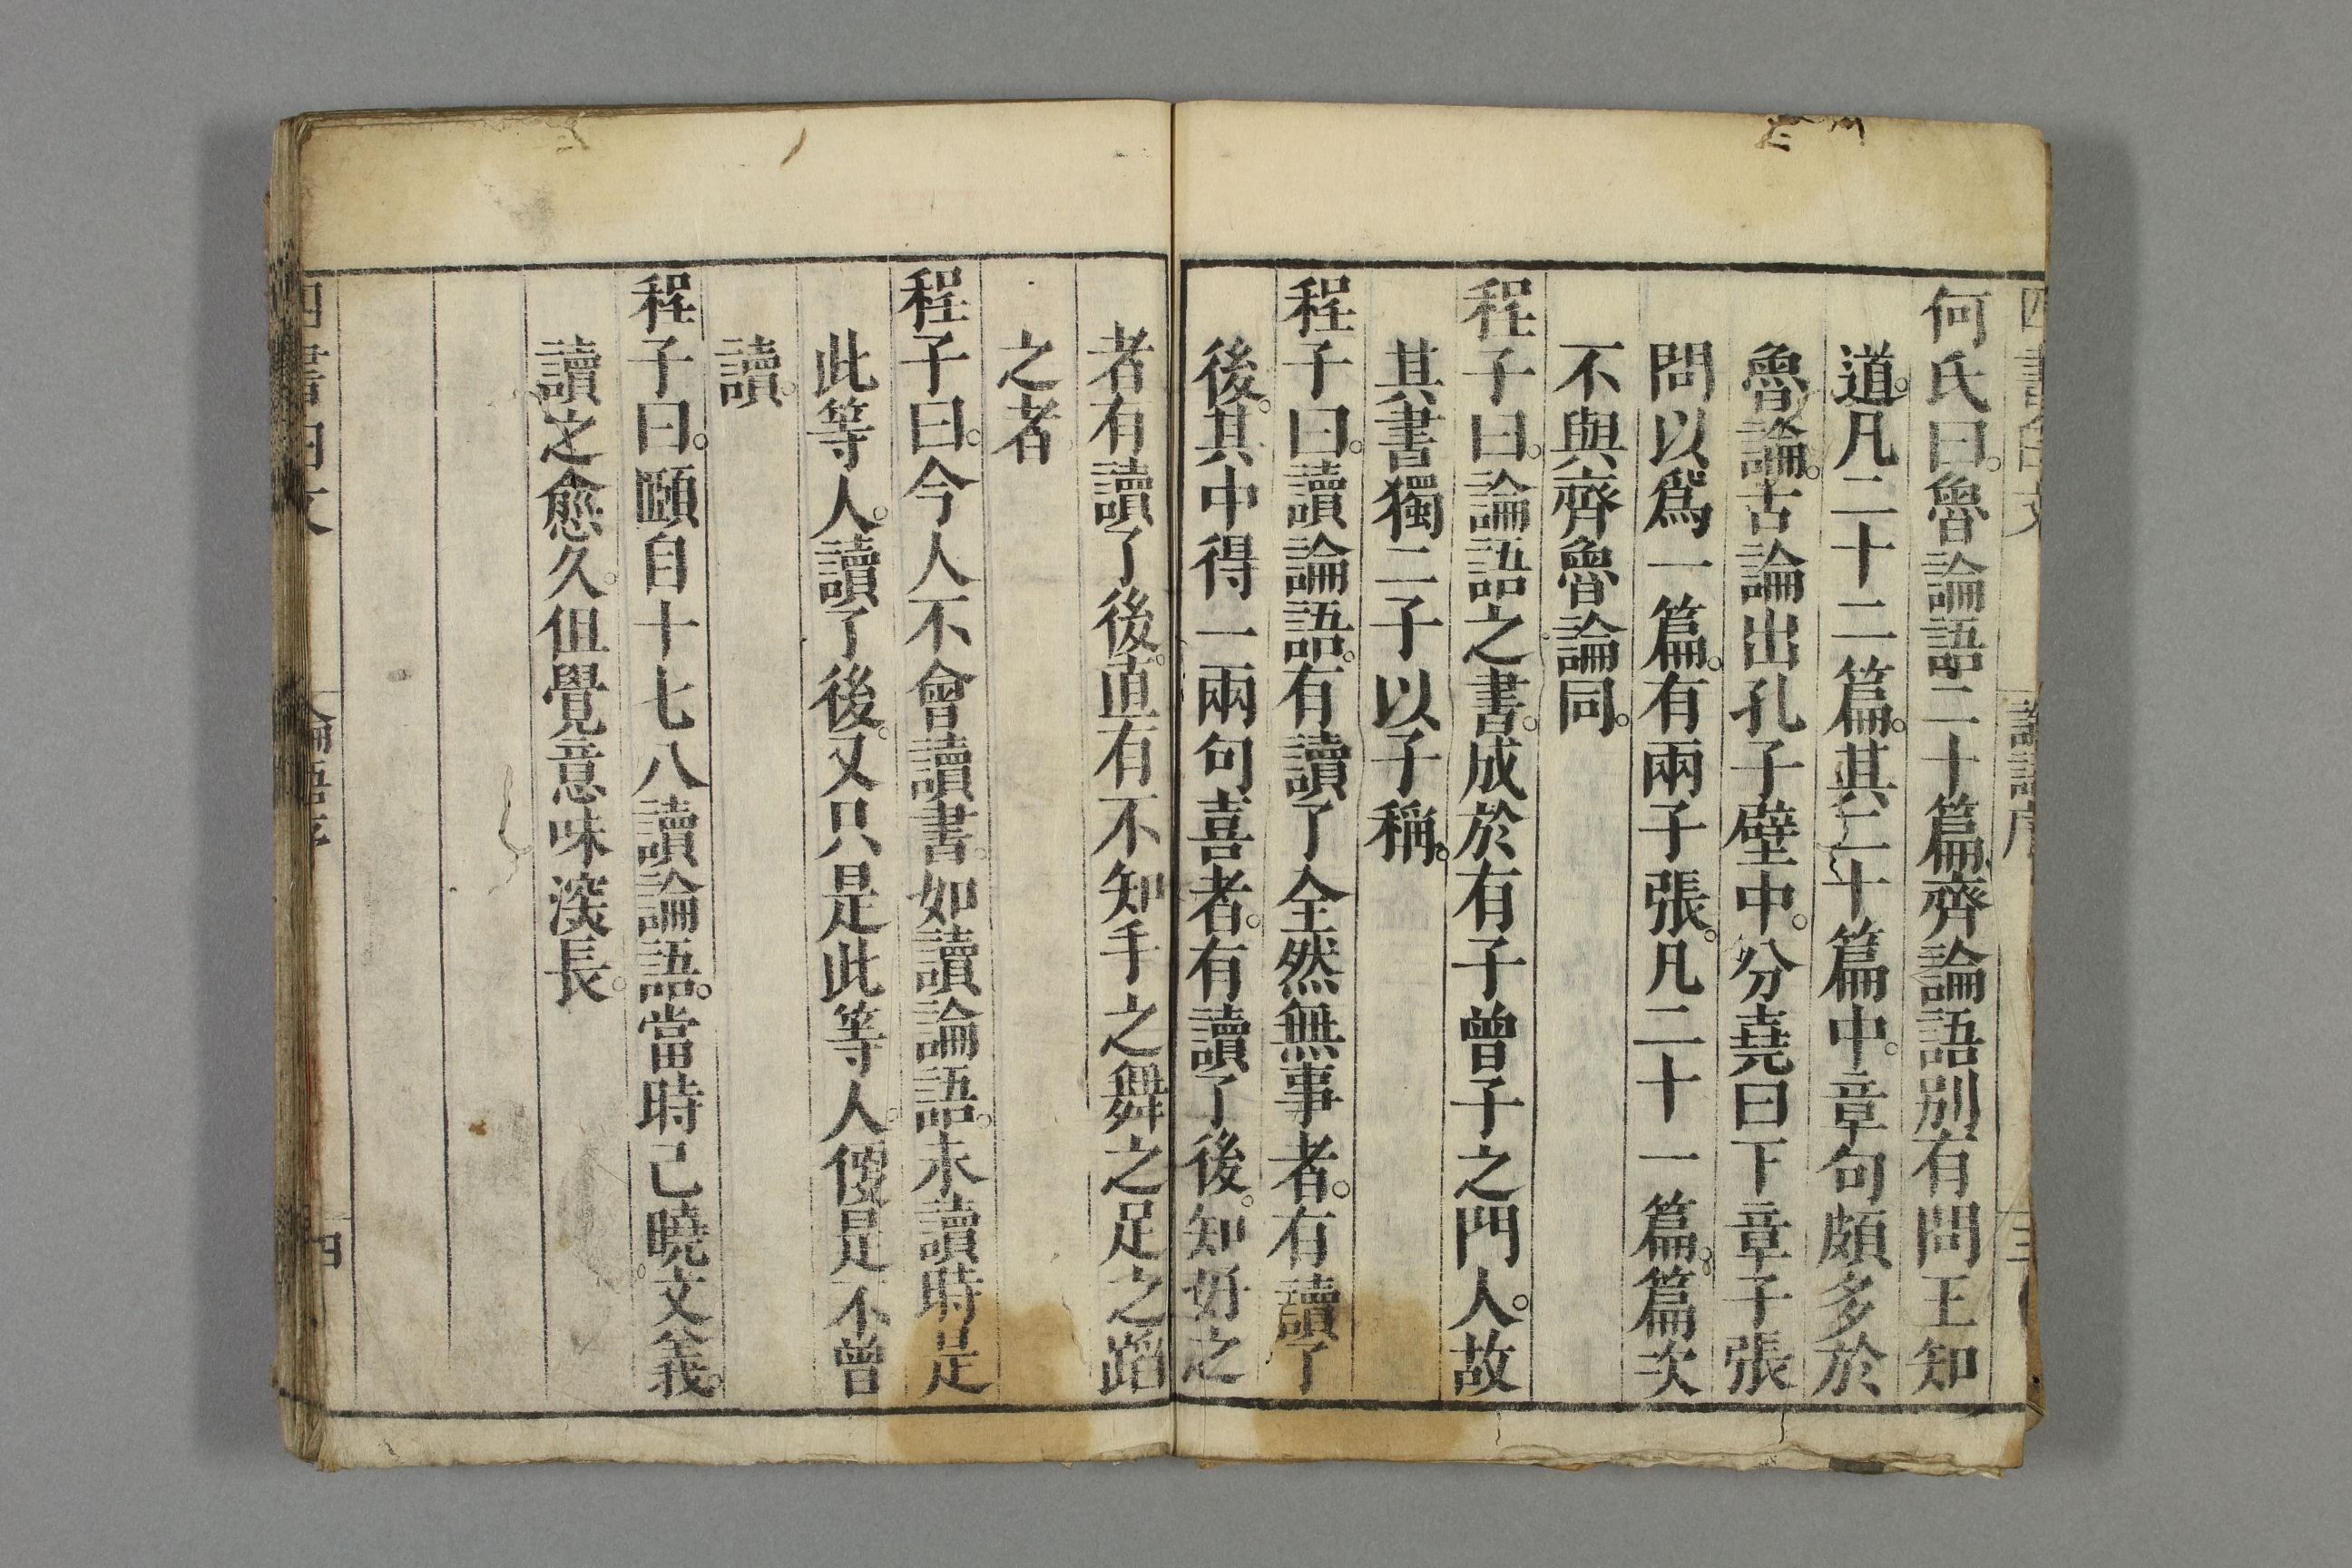 何氏曰。魯論語二十篇、齊論語別有問王知
道。凡二十二篇。其二十篇中。章句頗多於
魯論。古論出孔子壁中。分堯曰下章子張
問以爲一篇。有兩子張。凡二十一篇。篇次
不與齊魯論同。
程子曰。論語之書。成於有子曾子之門人。故
其書獨二子以子稱。
程子曰。讀論語。有讀了全然無事者。有讀了
後。其中得一兩句喜者。有讀了後。知好之
者有讀了後。直有不知手之舞之足之蹈
之者
程子曰。今人不會讀書。如讀論語。未讀時是
此等人。讀了後。又只是此等人。便是不曾
讀。
程子曰。頤自十七八讀論語。當時己曉。文義。
讀之愈久。但覺意味深長。